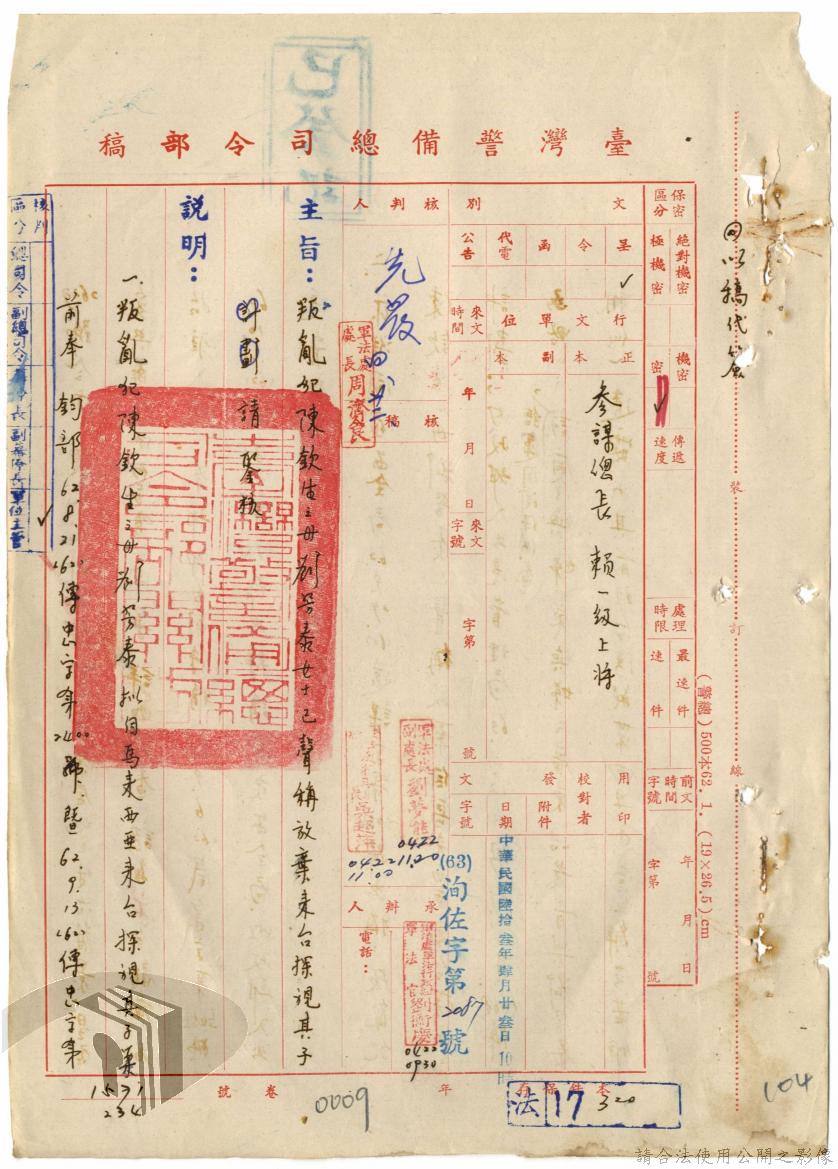 臺灣警備總司令部稿
以稿代簽
裝
訂
線
(警總)500本62.1.(19×26.5)cm
保密區分
絕對機密
極機密
機密
密
傳遞速度
最速件
速件
處理時限
前文時間字號
年月日
字第
號
文別
呈
令
函
代電
公告
行文單位
正本
副本
參謀總長 賴一級上將
來文時間
年月日
來文字號
字第
號
用印
校對者
發文
附件
日期
字號
中華民國陸拾叁年肆月廿叁日10時
(63)洵佐字第2087號
核判人
先發
軍法處處長周濟良
核稿
軍法處副處長劉夢熊
0422
11.20
0422
11.00
承辦人
軍法官劉衡慶
0422
0930
電話:
主旨:叛亂犯陳欽生之母劉芳泰女士已聲稱放棄來台探視其子
計劃,請鑒核
說明:
一、叛亂犯陳欽生之母劉芳泰擬自馬來西亞來台探視其子案
前奉 鈞部62.8.21(62)傳忠字第2400號暨62.9.13(62)傳忠字第
核判區分
總司令
副總司令
參謀長
副參謀長
單位主管
1571
234
卷號
0009
年
本件保存
法17
320
104
請合法使用公開之影像